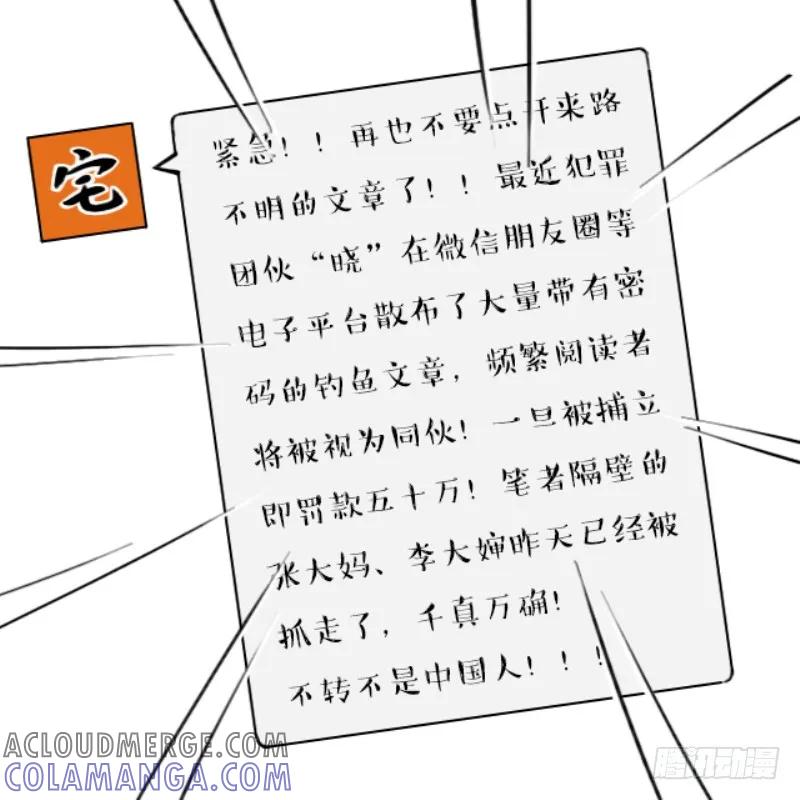 宅
紧急！！再也不要点开来路
不明的文章了！！最近犯罪
团伙“晓”在微信朋友圈等
电子平台散布了大量带有密
码的钓鱼文章，频繁阅读者
将被视为同伙！一旦被捕立
即罚款五十万！笔者隔壁的
张大妈、李大婶昨天已经被
抓走了，千真万确！
不转不是中国人！！！
ACLOUDMERGE.COM
COLAMANGA.COM
腾讯动漫